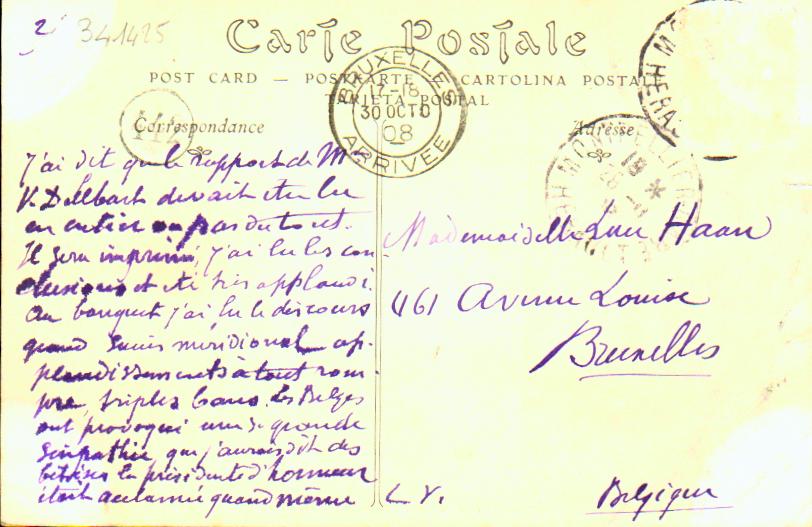 2
341425
Carte Postale
POST CARD — POSTKARTE — CARTOLINA POSTALE
TARJETA POSTAL
BRUXELLES
17-18
30 OCTO
08
ARRIVÉE
Correspondance
Adresse
J'ai dit que le rapport de M
V. Delbart devait être lu
en entier ou pas du tout.
Il sera imprimé, j'ai lu les con
clusions et été très applaudi.
Au banquet j'ai lu le discours
grand succès méridional ap-
plaudissements à tout rom-
pre, triples bans. Les Belges
ont provoqué une si grande
simpathie que j'aurais dit des
bêtises la présidente d'honneur
était acclamée quand même
L. V.
Mademoiselle Haan
461 Avenue Louise
Bruxelles
Belgique